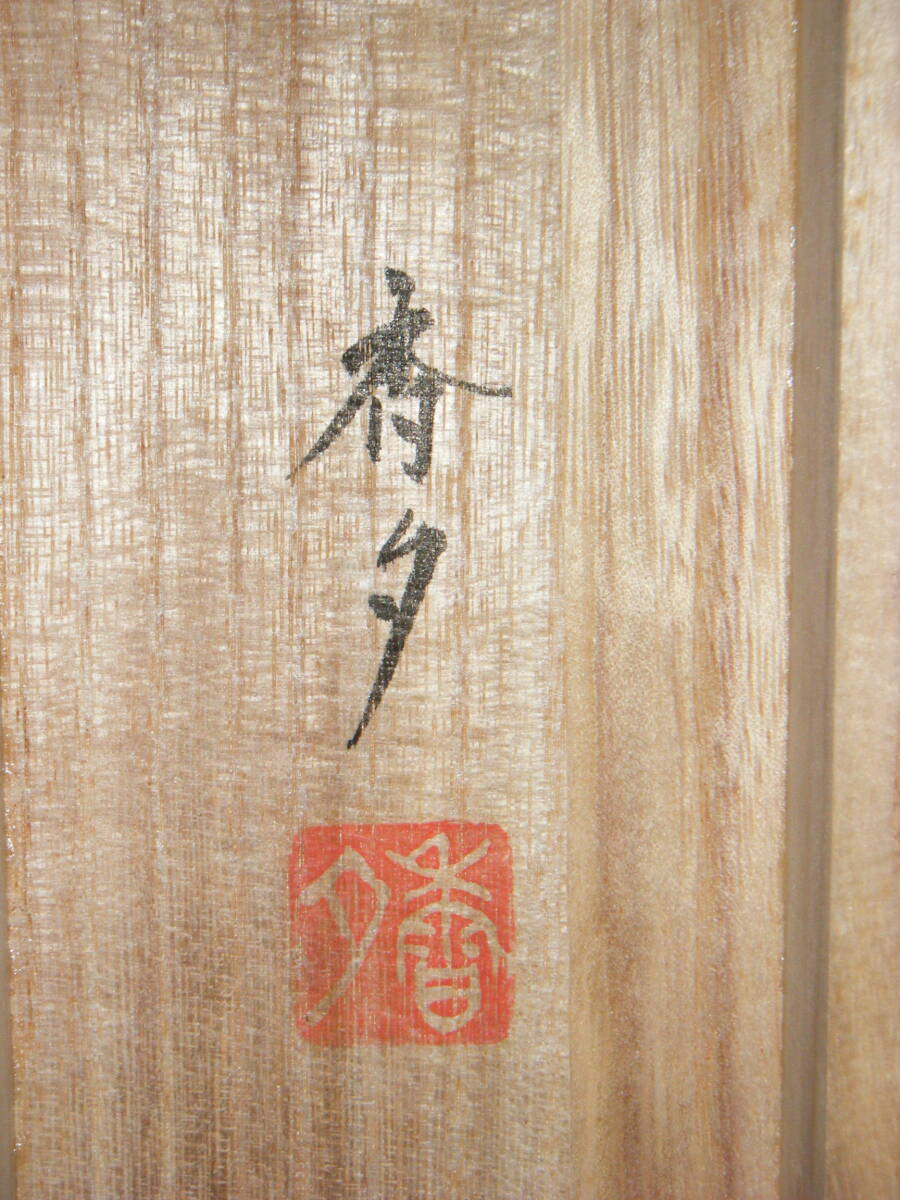 香夕
香夕